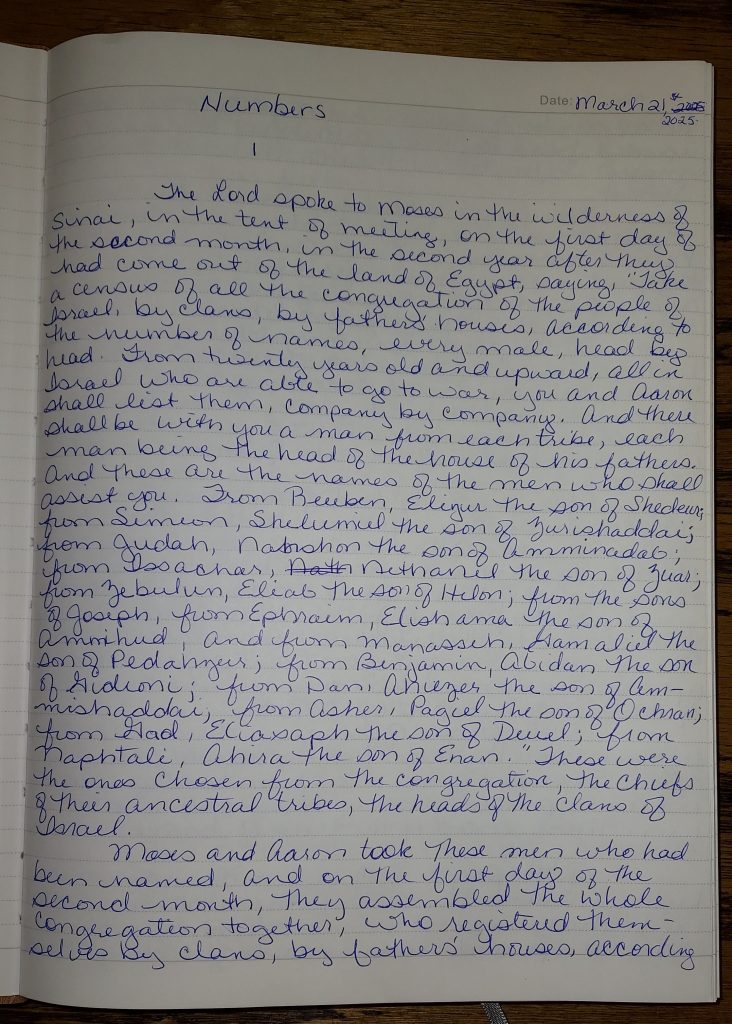 Numbers
Date: March 21, 2025
2025.
1
The Lord spoke to Moses in the wilderness of
Sinai, in the tent of meeting, on the first day of
the second month, in the second year after they
had come out of the land of Egypt, saying, "Take
a census of all the congregation of the people of
Israel, by clans, by fathers' houses, according to
the number of names, every male, head by
head. From twenty years old and upward, all in
Israel who are able to go to war, you and Aaron
shall list them, company by company. And there
shall be with you a man from each tribe, each
man being the head of the house of his fathers.
And these are the names of the men who shall
assist you. From Reuben, Elizur the son of Shedeur;
from Simeon, Shelumiel the son of Zurishaddai;
from Judah, Nahshon the son of Amminadab;
from Issachar, Nath Nethanel the son of Zuar;
from Zebulun, Eliab the son of Helon; from the sons
of Joseph, from Ephraim, Elishama the son of
Ammihud, and from Manasseh, Gamaliel the
son of Pedahzur; from Benjamin, Abidan the son
of Gideoni; from Dan, Ahiezer the son of Am-
mishaddai; from Asher, Pagiel the son of Ochran;
from Gad, Eliasaph the son of Deuel; from
Naphtali, Ahira the son of Enan." These were
the ones chosen from the congregation, the chiefs
of their ancestral tribes, the heads of the clans of
Israel.
Moses and Aaron took these men who had
been named, and on the first day of the
second month, they assembled the whole
congregation together, who registered them-
selves by clans, by fathers' houses, according